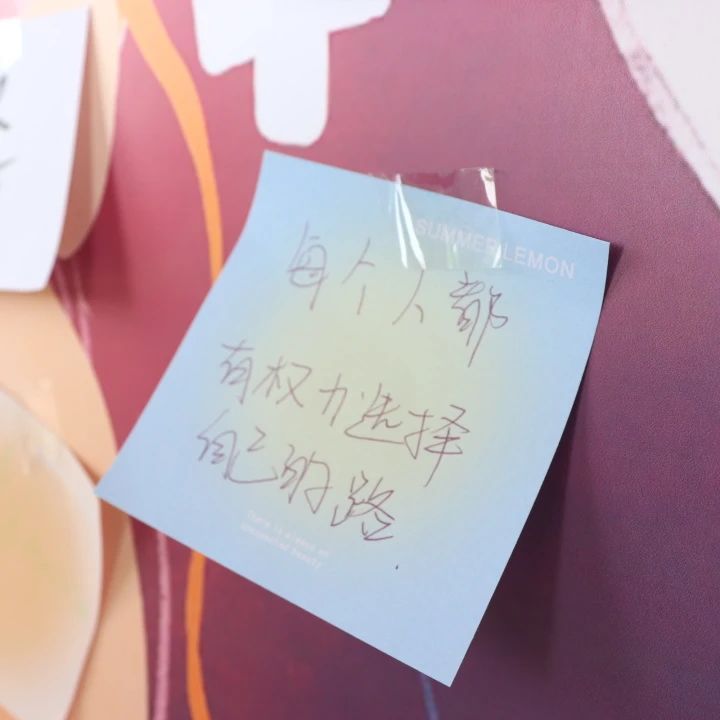 SUMMER LEMON
每个人都
有权力选择
自己的路.